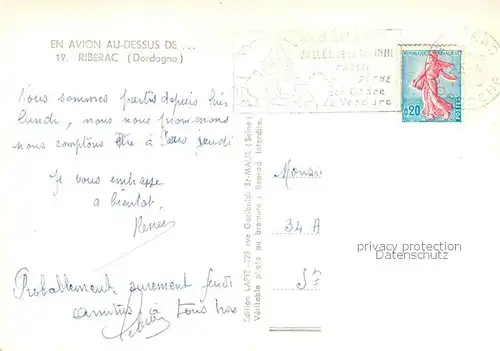 EN AVION AU-DESSUS DE ...
19. RIBERAC (Dordogne)
Nous sommes partis depuis hier
lundi, nous nous promenons
nous comptons être à jeudi
Je vous embrasse
à bientôt.
Renée
Probablement surement jeudi
amitiés à tous trois
Edition LAPIE - 125 rue Garibaldi St-MAUR (Seine)
Véritable photo au bromure : Reprod. Interdite.
VALLEE DE LA
PECHE
son Cadre
de Verdure
0,20
POSTES
34 A
privacy protection
Datenschutz